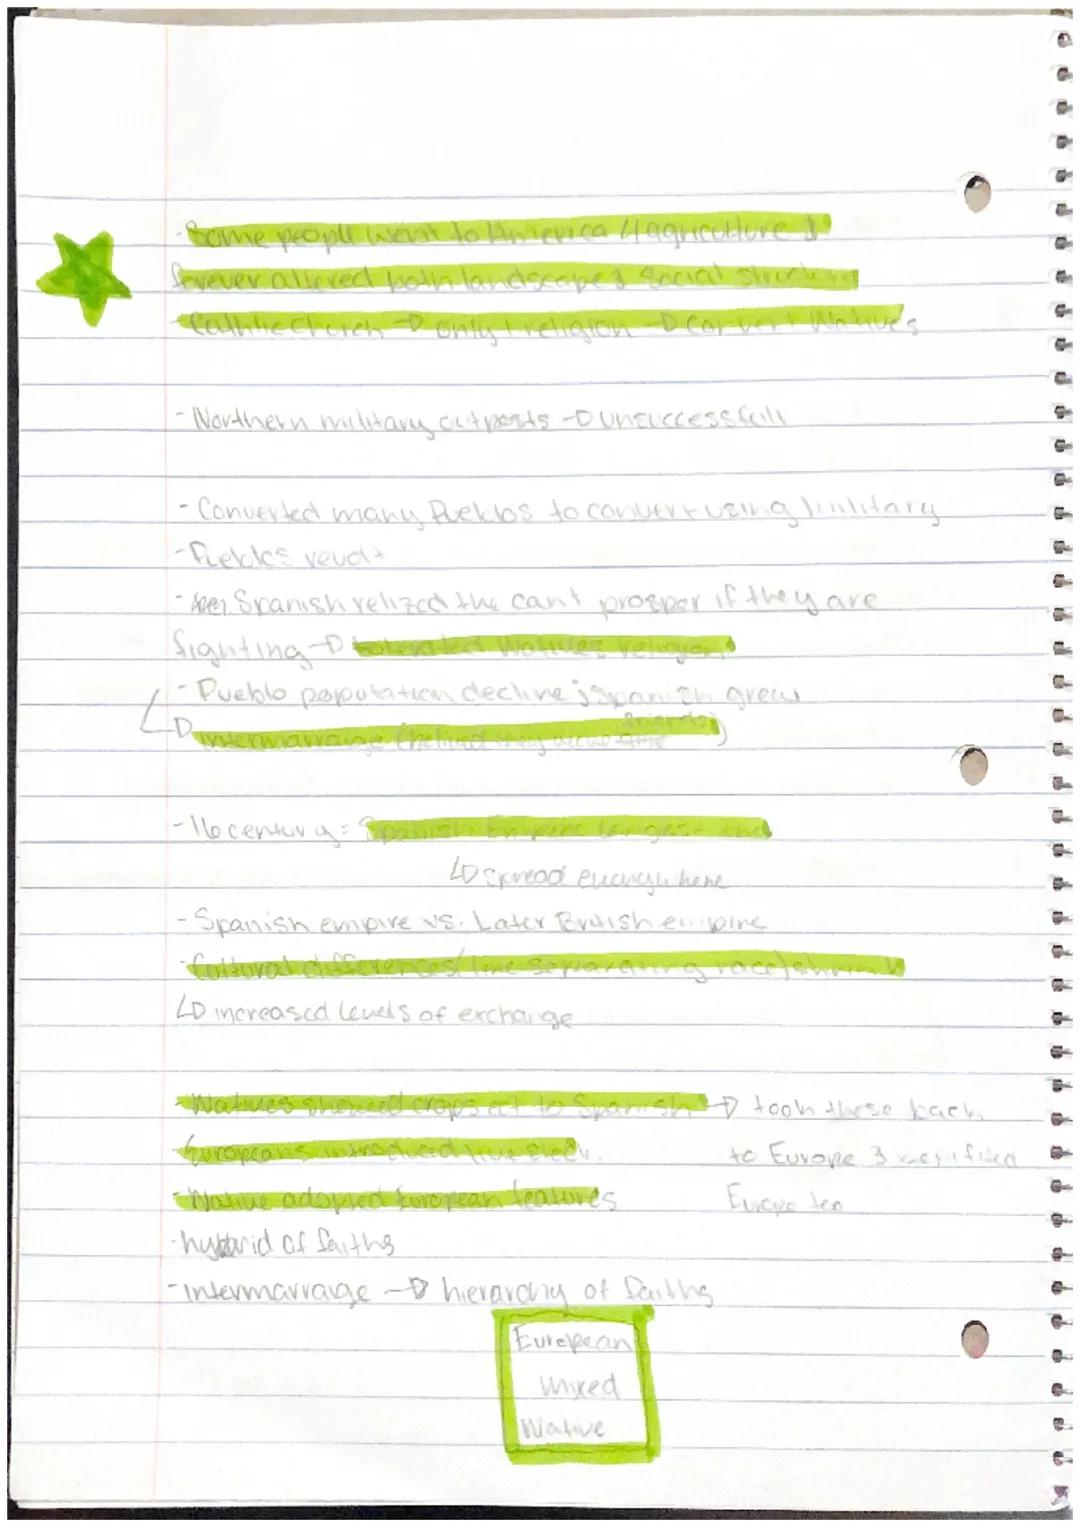 - Some people went to America 4 agriculture &
forever altered both landscape & social structure
- Cathlic Church → only 1 religion → convert Natives
- Northern military outposts → unsuccessfull
- Converted many Pueblos to convert using military
- Pueblos revolt
- Spanish relized the cant prosper if they are
fighting → tolerated Natives religion
- Pueblo population decline ; Spanish grew
↳ intermarraige (helped they were friends)
- 16 century = Spanish Empire largest one
↳ spread everywhere
- Spanish empire vs. Later British empire
- Cultural differences (line separating race) shrink
↳ increased levels of exchange
- Natives showed crops ect to Spanish → took these back
- Europeans introduced live stock. to Europe &
- Native adopted European features Europe too
- hybrid of faiths
- intermarraige → hierarchy of faiths
European
Mixed
Native